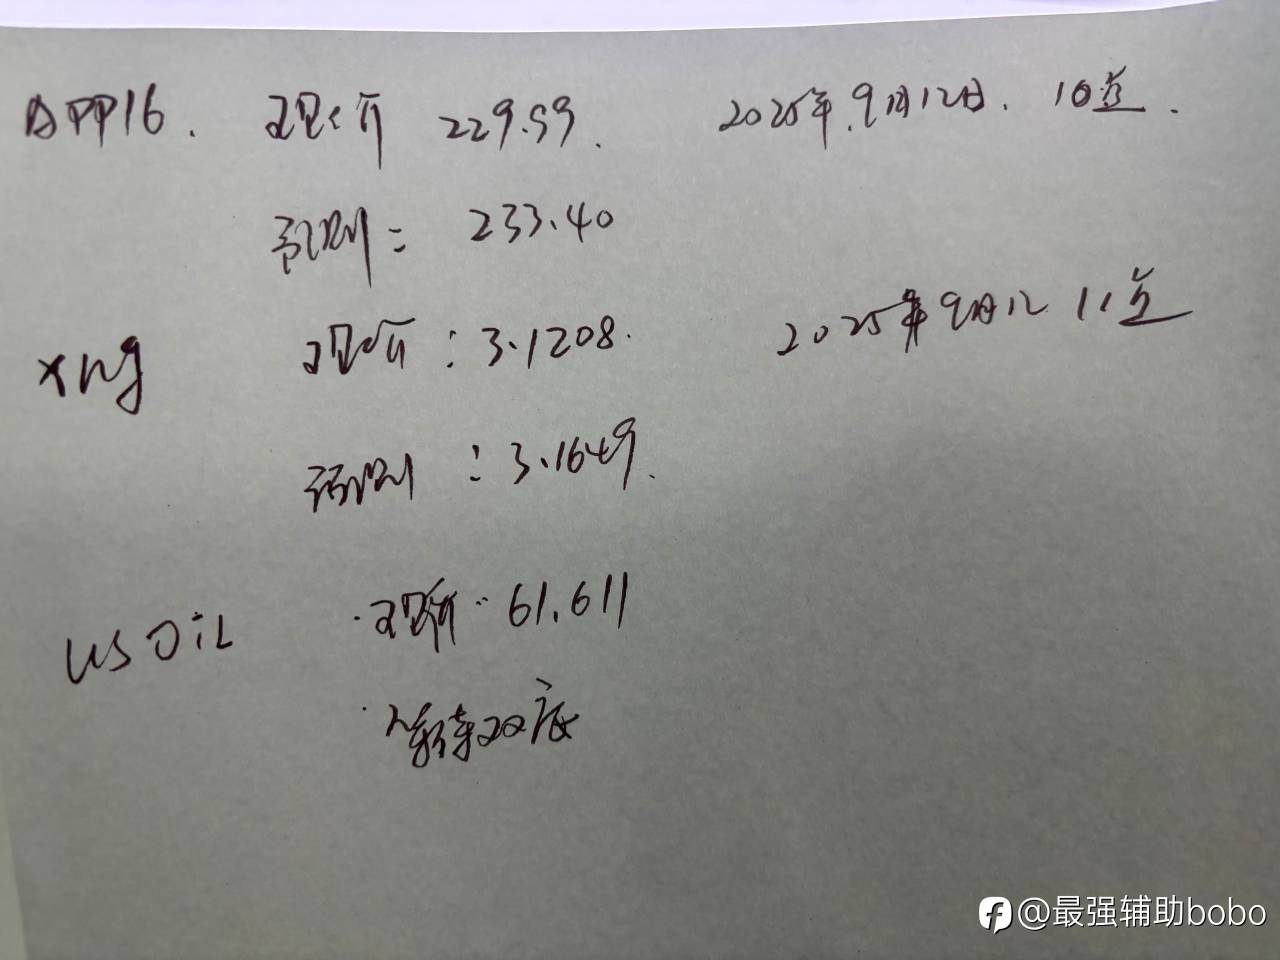 APP16. 现价 229.59. 2025年.9月12日. 10点.
预测: 233.40
xng 现价: 3.1208. 2025年9月12 11点
预测: 3.1649.
USOiL 现价: 61.611
等待双底
@最强辅助bobo